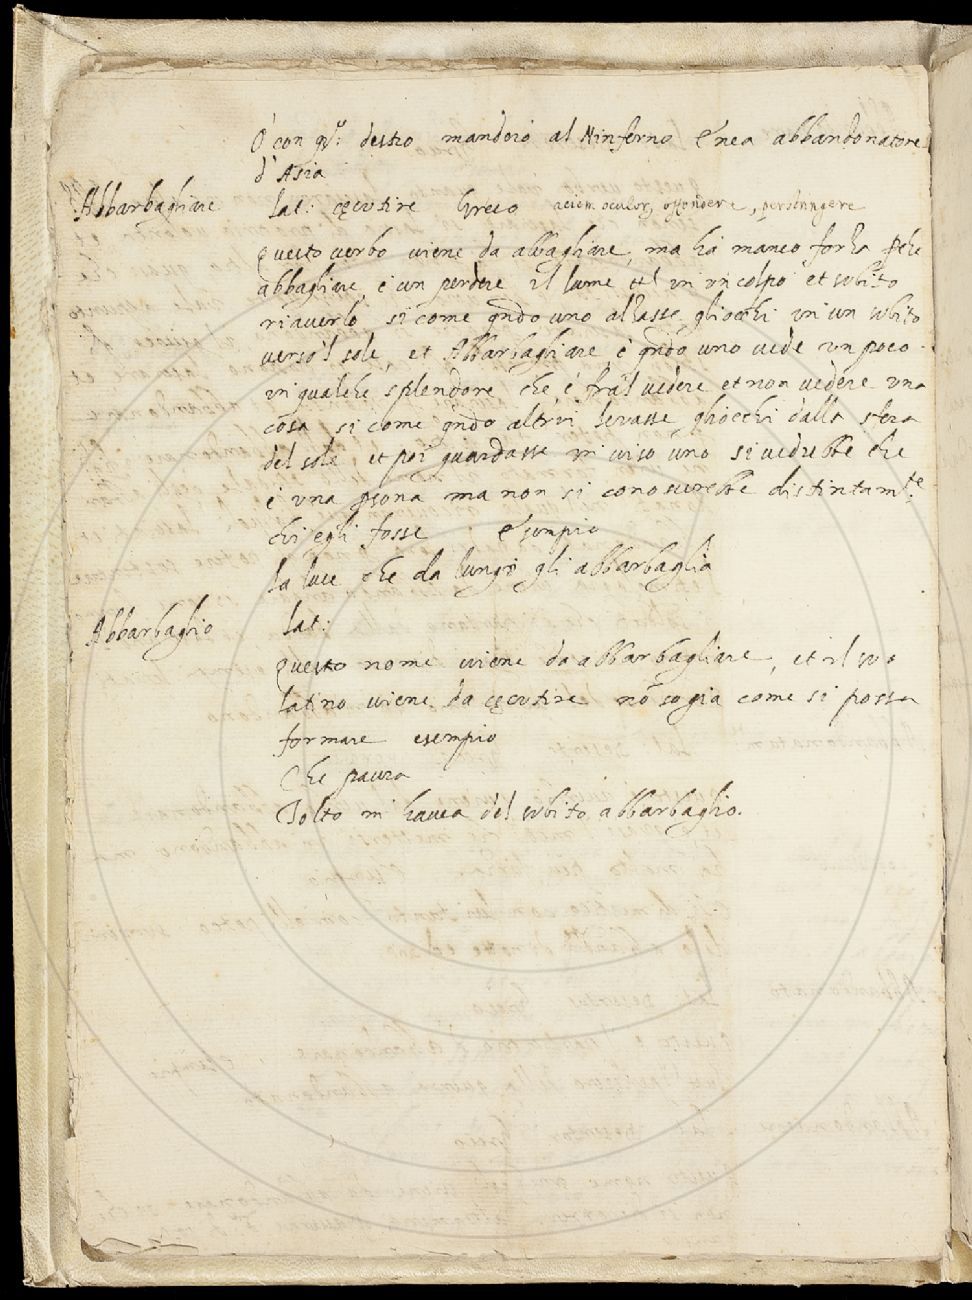 O con qu: destro mandorò al Ninferno Enea abbandonatore
d'Asia
Abbarbagliare lat: cęcutire Greco aciem oculor, offondere, perstringere
questo verbo viene da abbagliare, ma ha manco forza pche
abbagliare, è un perdere il lume et in un colpo et subito
riaverlo, si come qndo uno alzasse gliocchi in un subito
verso'l sole, et Abbarbagliare è qndo uno vede un poco
in qualche splendore che è fra'l vedere et non vedere una
cosa si come qndo altrui levasse gliocchi dalla sfera
del sole et poi guardasse in viso uno si vedrebbe che
è una psona ma non si conoscerebbe distintamte
chi egli fosse Esempio
la luce che da lungi gli abbarbaglia
Abbarbaglio lat:
questo nome viene da abbarbagliare, et il suo
latino viene da cęcutire nō so gia come si possa
formare esempio
Che paura
Tolto m' havea del subito abbarbaglio.